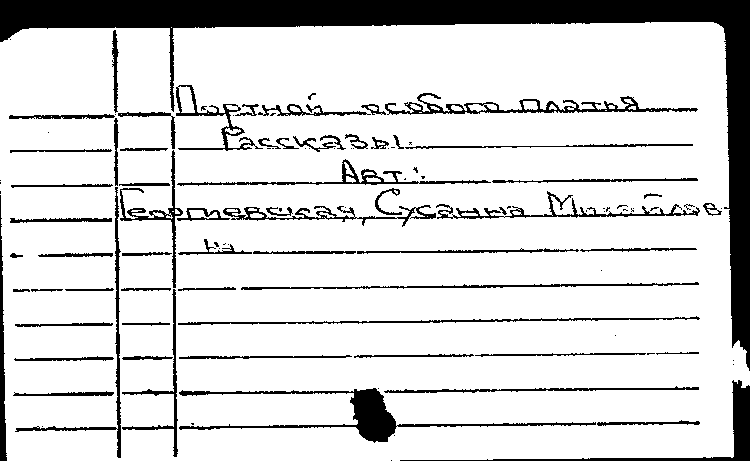 Портной особого платья
Рассказы.
Авт.:
Георгиевская, Сусанна Михайлов-
на